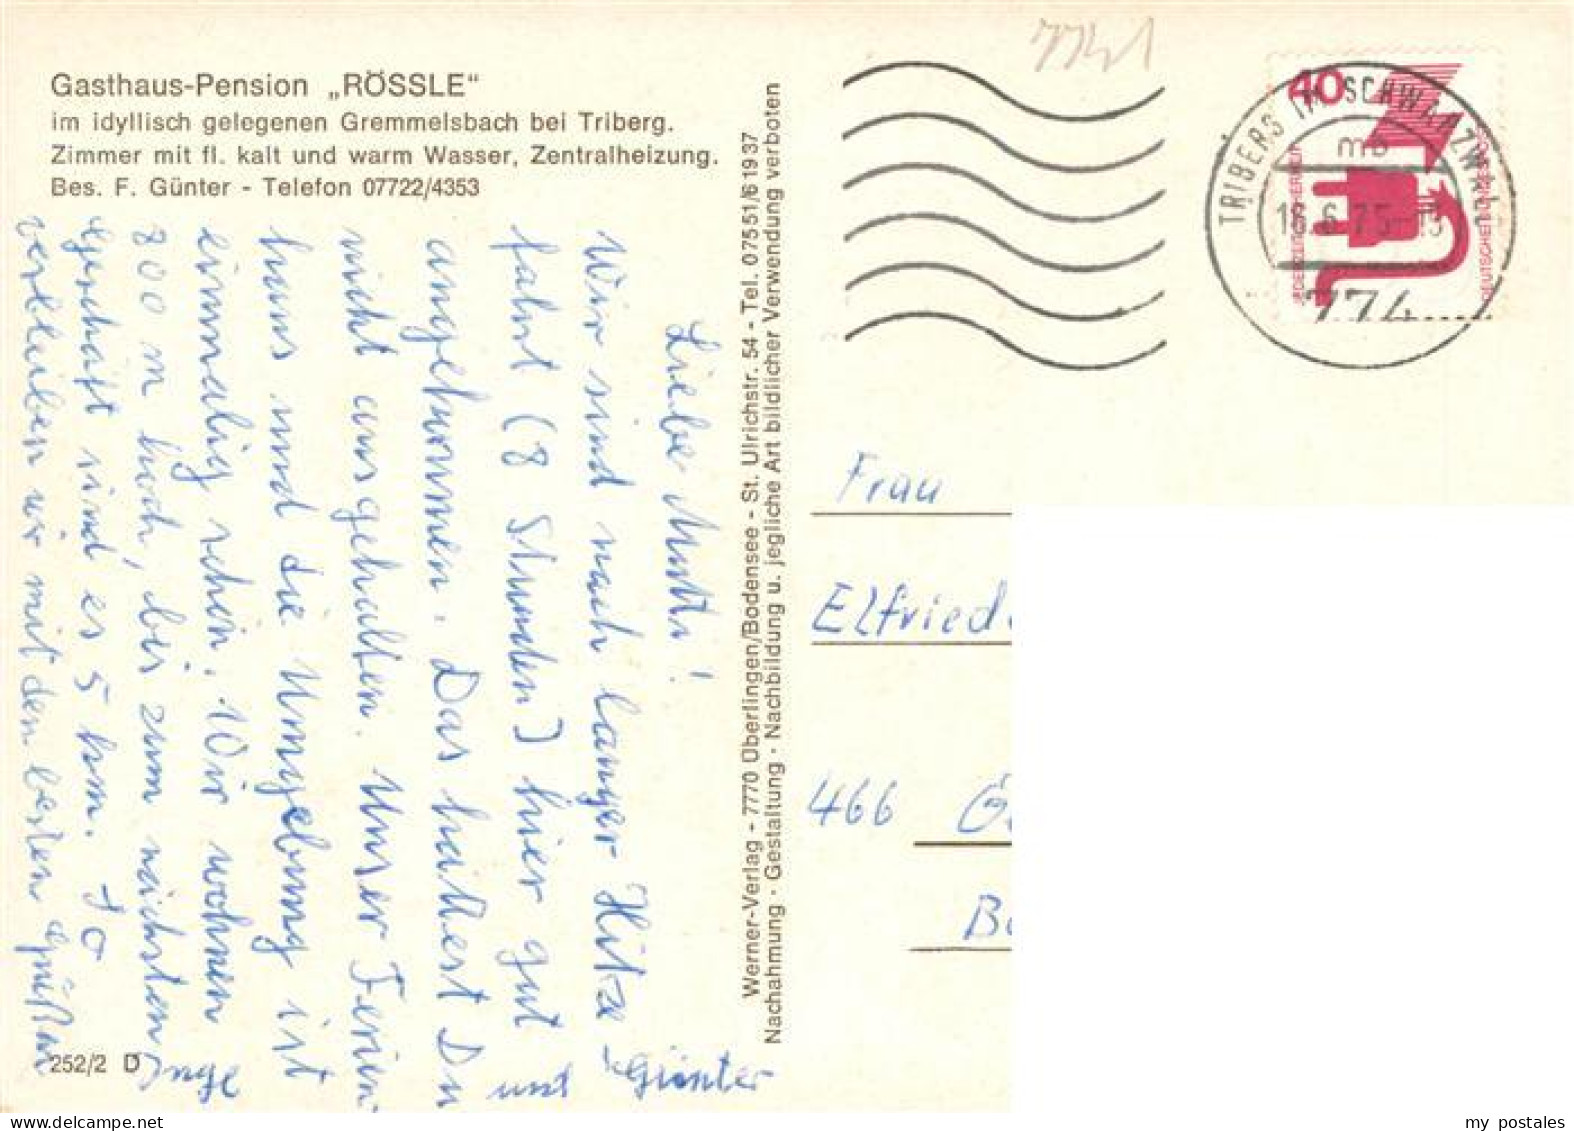 Gasthaus-Pension „RÖSSLE“
im idyllisch gelegenen Gremmelsbach bei Triberg.
Zimmer mit fl. kalt und warm Wasser, Zentralheizung.
Bes. F. Günter - Telefon 07722/4353
Liebe Mutti!
Wir sind nach langer Hitze
fahrt (8 Stunden) hier gut
angekommen. Das hättest Du
nicht ausgehalten. Unser Ferien
haus und die Umgebung ist
einmalig schön. Wir wohnen
800 m hoch, bis zum nächsten
Geschäft sind es 5 km. So
verbleiben wir mit den besten Grüßen
Inge und Günter
252/2 D
Werner-Verlag - 7770 Überlingen/Bodensee - St. Ulrichstr. 54 - Tel. 07551/61937
Nachahmung · Gestaltung · Nachbildung u. jegliche Art bildlicher Verwendung verboten
7741
40
JEDERZEIT SICHERHEIT
DEUTSCHE BUNDESPOST
TRIBERG IM SCHWARZWALD
mb
16.6.75-15
774
Frau
Elfriede
466 G
B
my postales